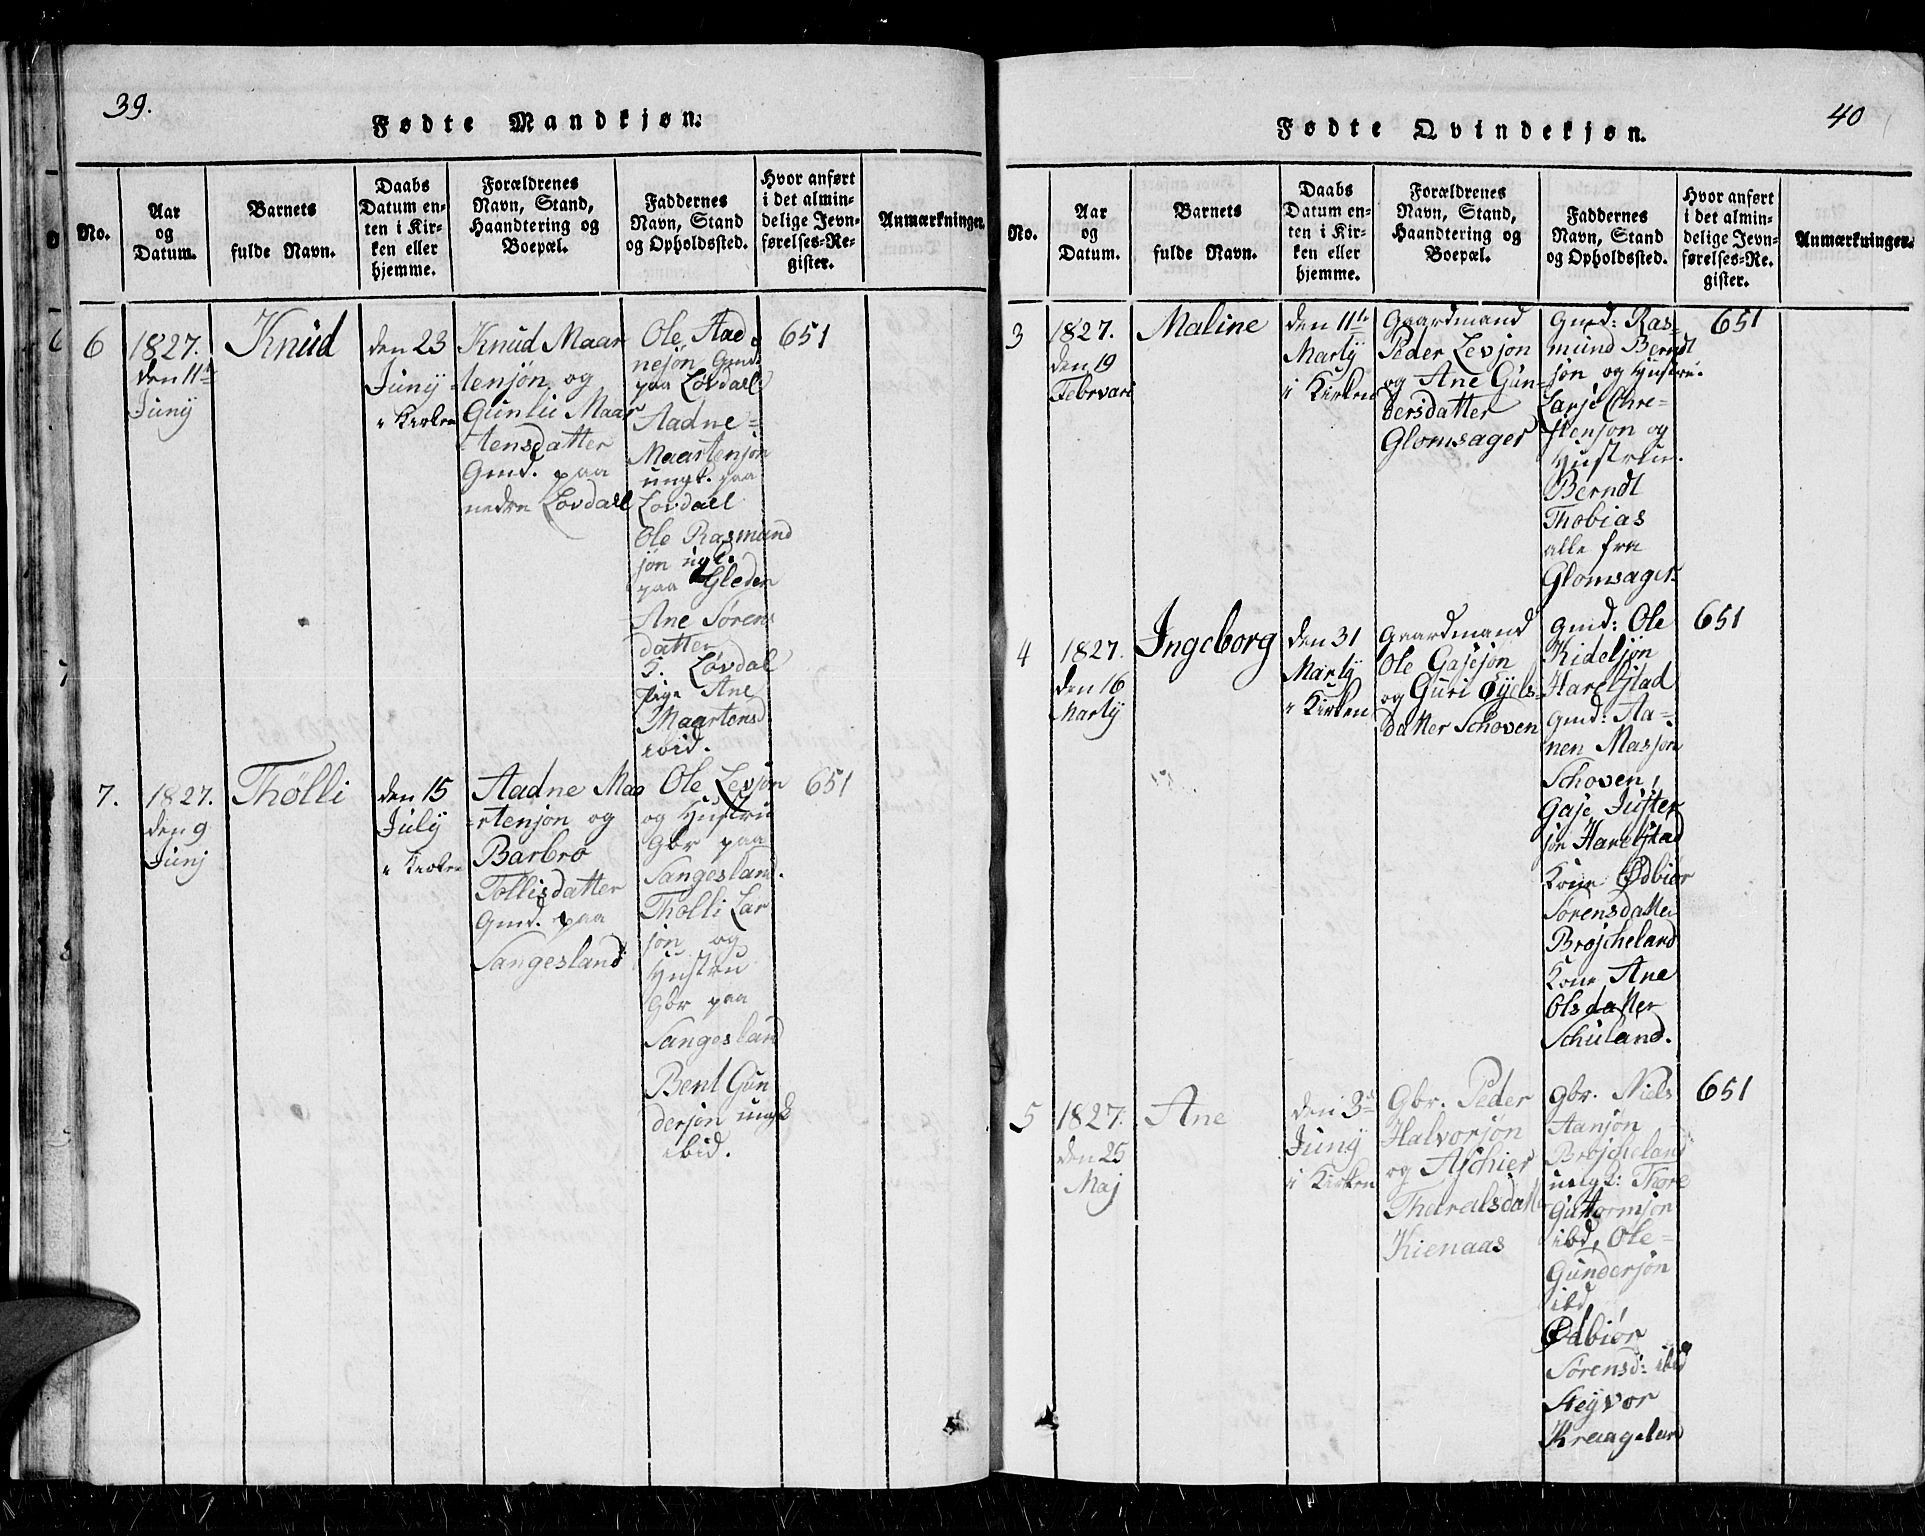 39.
Fødte Mandkjøn.
No.
Aar
og
Datum.
Barnets
fulde Navn.
Daabs
Datum en-
ten i Kir-
ken eller
hjemme.
Forældrenes
Navn, Stand,
Haandtering og
Boepæl.
Faddernes
Navn, Stand
og Opholdssted.
Hvor anført
i det almin-
delige Jevn-
førelses-Re-
gister.
Anmærkninger.
6
1827.
den 11te
Junij
Knud
den 23
Junij
i Kirken
Knud Maar
tensøn, og
Gunlu Maar
tensdatter
Gmd. paa
nedre Lovdall
Ole Aad
nesøn Gmd.
paa Løvdall
Aadne
Maartensøn
ungk. paa
Lovdall
Ole Rasmund
søn ugk.
paa Gleden
Ane Sørens
datter
Løvdal
Pige Ane
Maartensd
ibid.
651
7.
1827.
den 9
Junj
Thölli
den 15
July
i Kirken
Aadne Maa
rtensøn og
Barbro
Tollisdatter
Gmd. paa
Sangesland
Ole Levsøn
og Hustru
Gbr paa
Sangesland.
Tholli Lar
søn og
Hustru
Gbr paa
Sangesland
Bent Gun
dersøn ungk
ibid.
651
40
Fødte Qvindekjøn.
No.
Aar
og
Datum.
Barnets
fulde Navn.
Daabs
Datum en-
ten i Kir-
ken eller
hjemme.
Forældrenes
Navn, Stand,
Haandtering og
Boepæl.
Faddernes
Navn, Stand
og Opholdssted.
Hvor anført
i det almin-
delige Jevn-
førelses-Re-
gister.
Anmærkninger.
3
1827.
den 19
Februari
Maline
den 11te
Martij
i Kirken
Gaardmand
Peder Levsøn
og Ane Gun-
dersdatter
Glomsager
Gmd: Ras-
mund Berndt
søn og Hustru.
Larse Chre-
stensøn og
Hustru.
Berndt
Thobias
alle fra
Glomsager
651
4
1827.
den 16
Martij
Ingeborg
den 31
Martij
i Kirken
Gaardmand
Ole Gasesøn
og Guri Øjels
datter Schoven
Gmd: Ole
Kidelsøn
Harelstad
Gmd: Aa-
nen Massøn
Schoven,
Gase Juster
søn Harelstad
Kone Ødbiør
Sørensdatter
Brøscheland
Kone Ane
Olsdatter
Schuland.
651
5
1827.
den 25
Maj
Ane
den 3de
Junij
i Kirken
Gbr. Peder
Halvorsøn
og Aschier
Tharalsdatt
Kienaas
Gbr. Niels
Aansøn
Brøscheland
ungk: Thore
Guttormsøn
ibd, Ole
Gundersøn
ibd
Ødbiør
Sørensd: ibid
Steyvor
Kraageland
651